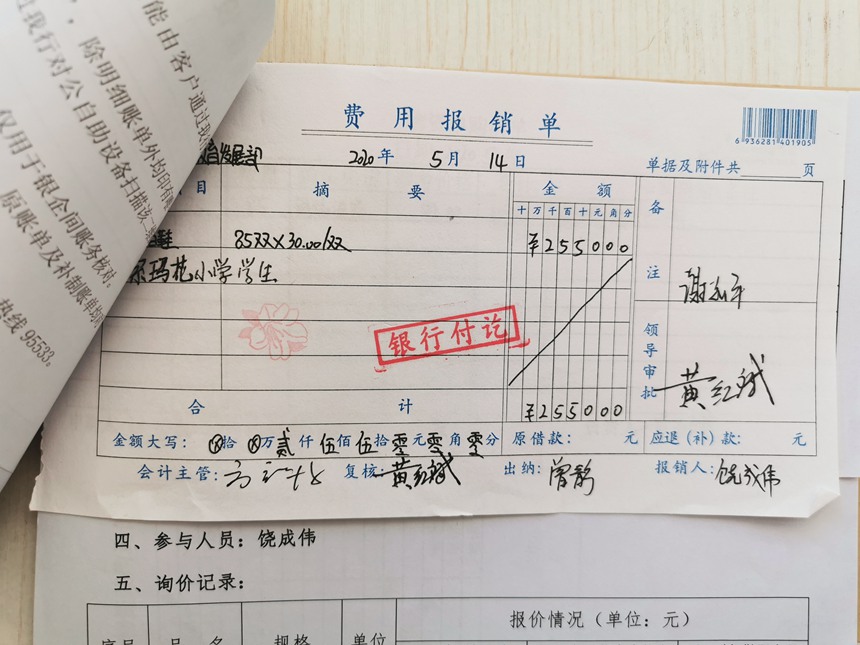 能由客户通过我
，除明细账单外均印有
我行对公自助设备扫描该二
仅用于银企间账务核对，
原账单及补制账单均
热线 95533。
费用报销单
6 936281 401905
育发展部 2020年 5月 14日 单据及附件共 页
目 摘要 金额 备注
十万千百十元角分
鞋 85双×30.00/双 ¥255000
尔玛花小学学生
银行付讫
领导审批 黄红斌
合计 ¥255000
金额大写： ⊗拾 ⊗万 贰仟 伍佰 伍拾 零元 零角 零分 原借款： 元 应退（补）款： 元
会计主管： 复核： 黄红斌 出纳： 曾静 报销人： 饶成伟
四、参与人员：饶成伟
五、询价记录：
报价情况（单位：元）
序号 品名 规格 单位